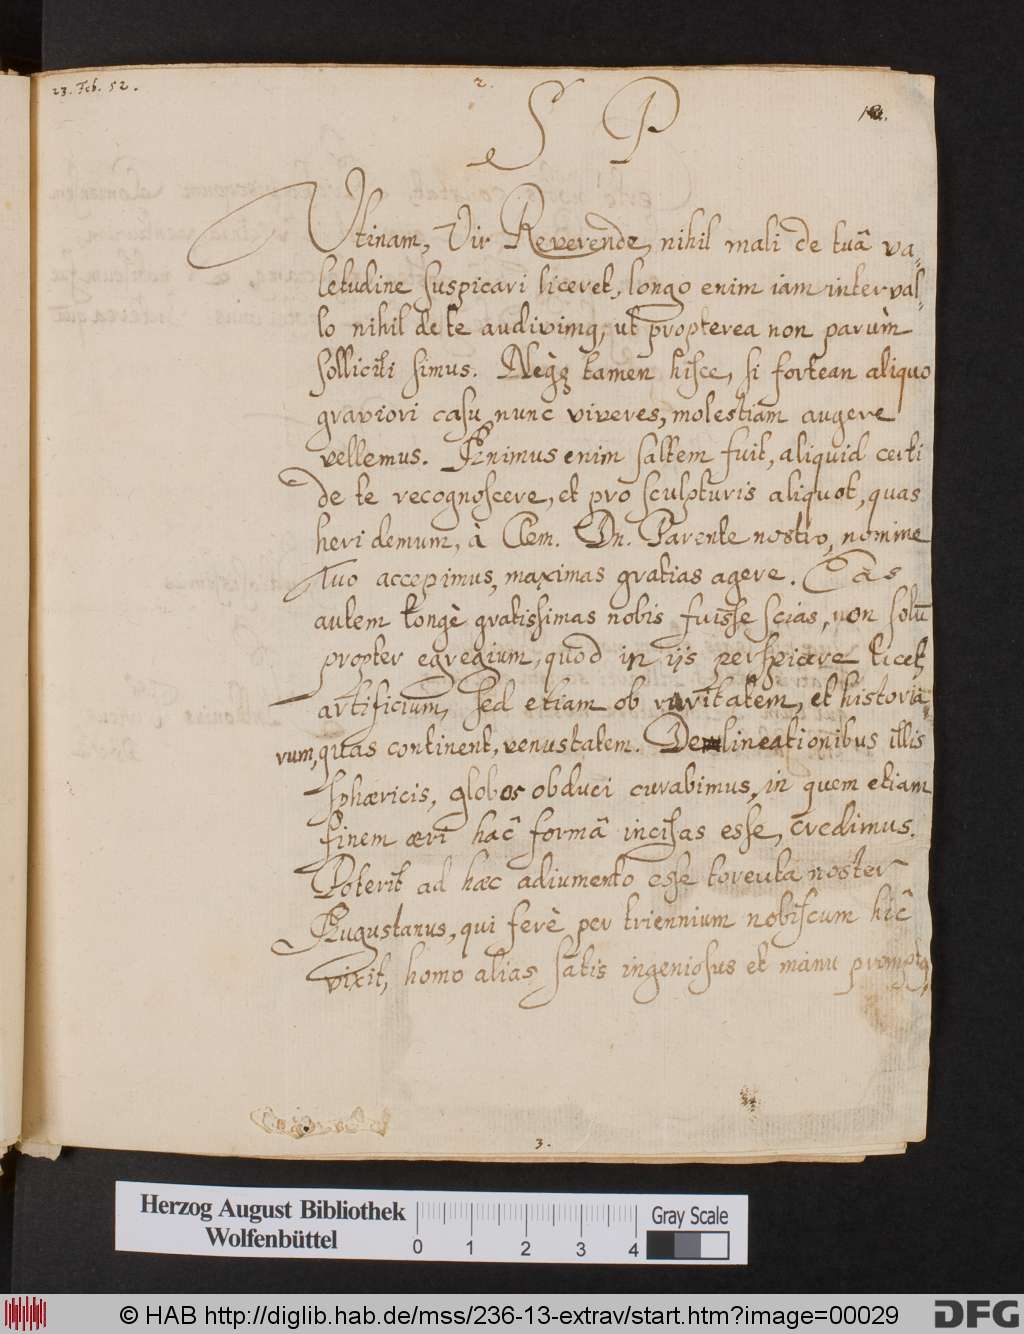 23. Feb. 52.
2.
S P
Utinam, Vir Reverende, nihil mali de tuâ va-
letudine suspicari liceret, longo enim iam interval-
lo nihil de te audivimq, ut propterea non parùm
solliciti simus. Neq̀ꝫ tamen hisce, si fortean aliquo
graviori casu nunc viveres, molestiam augere
vellemus. Animus enim saltem fuit, aliquid certi
de te recognoscere, et pro sculpturis aliquot, quas
heri demum, à Clem. Dn. Parente nostro, nomine
Tuo accepimus, maximas gratias agere. Eas
autem longè gratissimas nobis fuisse scias, non solū
propter egregium, quod in ijs perspicere licet,
artificium, sed etiam ob raritatem, et historia-
rum, quas continent, venustatem. Delineationibus illis
sphæricis, globos obduci curabimus, in quem etiam
finem æri hac formâ incisas esse, credimus.
Poterit ad hæc adiumento esse toreuta noster
Augustanus, qui ferè per triennium nobiscum hîc
vixit, homo alias satis ingeniosus et manu promptq,
3.
Herzog August Bibliothek
Wolfenbüttel
0 1 2 3 4
Gray Scale
© HAB http://diglib.hab.de/mss/236-13-extrav/start.htm?image=00029
DFG